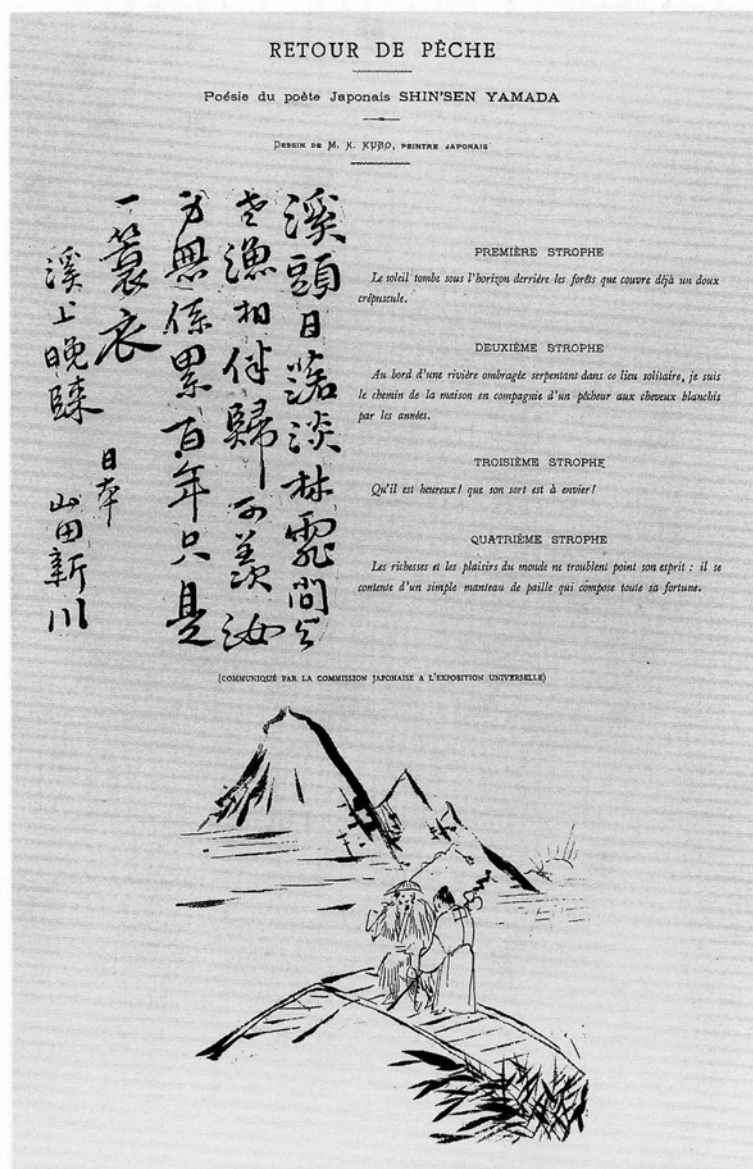 RETOUR DE PÊCHE
Poésie du poète Japonais SHIN'SEN YAMADA
DESSIN DE M. K. KUBO, PEINTRE JAPONAIS
溪頭日落淡林霏間与
老漁相伴歸可羨汝
身無係累百年只是
一蓑衣
溪上晩
日本
山田新川
PREMIÈRE STROPHE
Le soleil tombe sous l'horizon derrière les forêts que couvre déjà un doux
crépuscule.
DEUXIÈME STROPHE
Au bord d'une rivière ombragée serpentant dans ce lieu solitaire, je suis
le chemin de la maison en compagnie d'un pêcheur aux cheveux blanchis
par les années.
TROISIÈME STROPHE
Qu'il est heureux! que son sort est à envier!
QUATRIÈME STROPHE
Les richesses et les plaisirs du monde ne troublent point son esprit : il se
contente d'un simple manteau de paille qui compose toute sa fortune.
(COMMUNIQUÉ PAR LA COMMISSION JAPONAISE A L'EXPOSITION UNIVERSELLE)